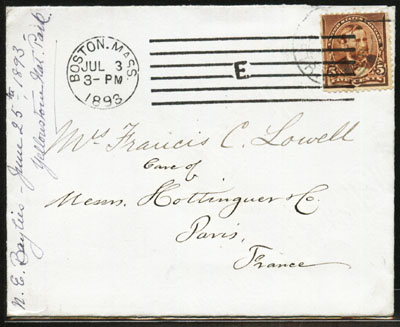 BOSTON. MASS.
JUL 3
3-PM
1893
E
Mrs Francis C. Lowell
Care of
Messrs. Hottinguer & Co.
Paris,
France
N. E. Baylies - June 25th, 1893.
Yellowstone Nat. Park